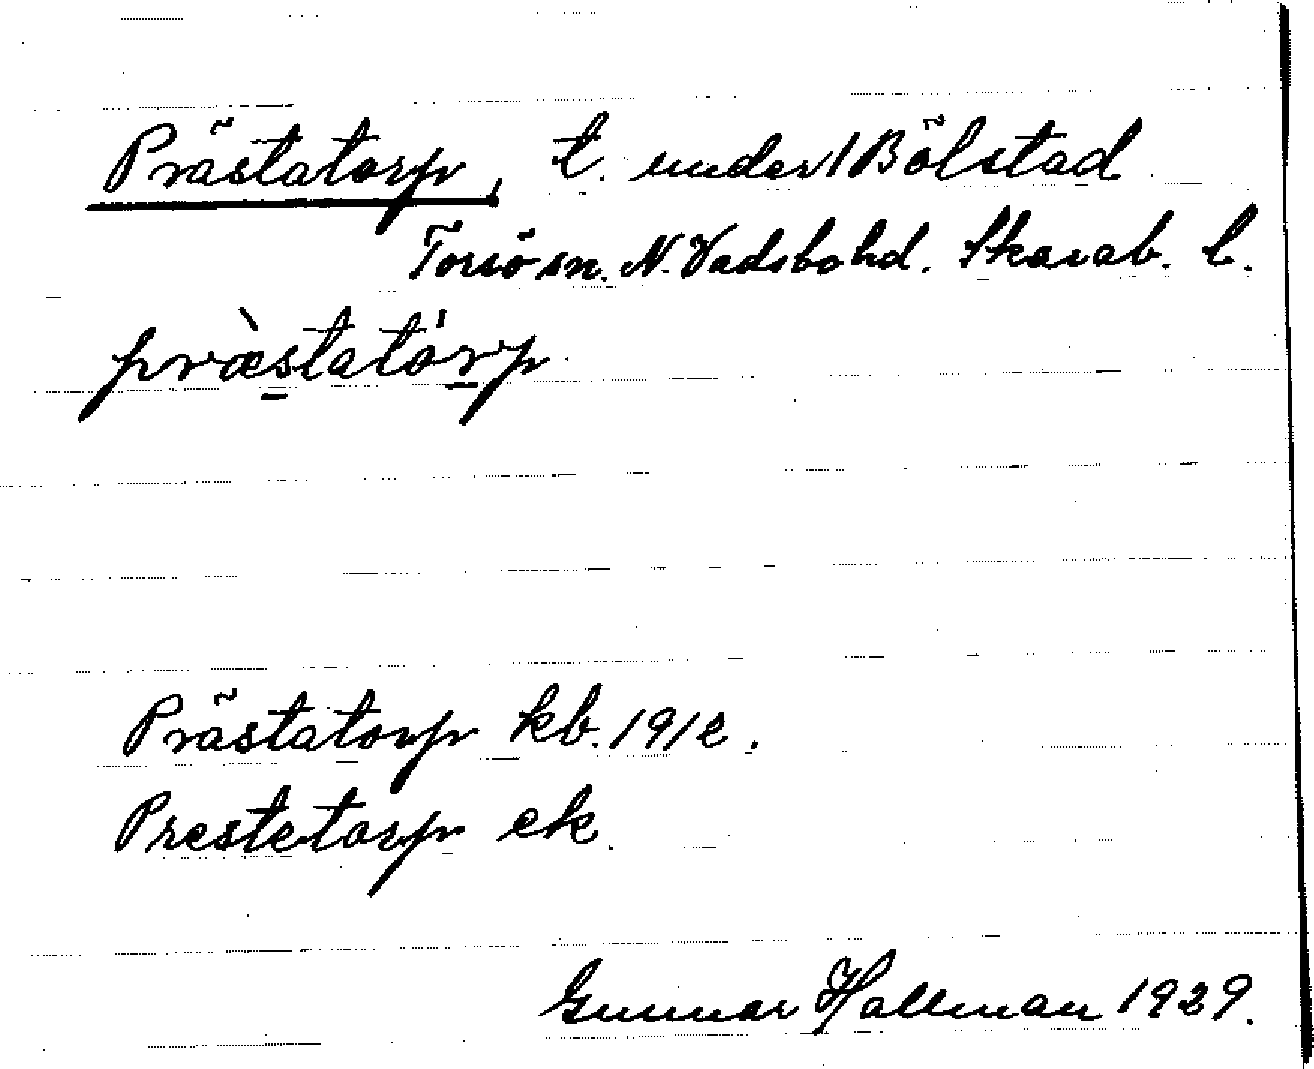 Prästatorp, t. under 1 Bölstad
Torsö sn. N. Vadsbo hd. Skarab. l.
præ̀statårp
Prästatorp kb. 1912.
Prestetorp ek.
Gunnar Hallman 1929.